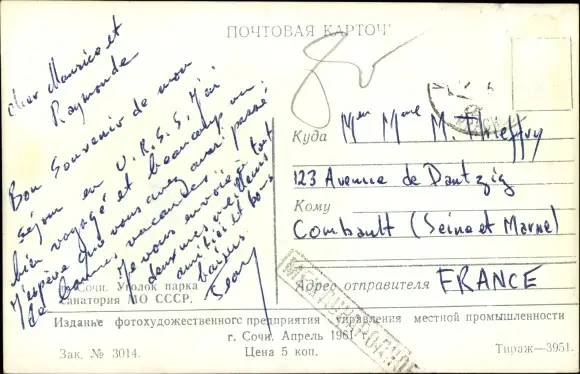 ПОЧТОВАЯ КАРТОЧ
Cher Maurice et
Raymonde
Bon Souvenir de mon
séjour en U.R.S.S. J'ai
bien voyagé et beaucoup vu.
J'espère que vous avez avez passé
de bonnes vacances.
Je vous envoie à tout
deux mes meilleurs
amitiés et bons
baisers
Куда
Mr Mme M. Thieffry
123 Avenue de Dantzig
Кому
Combault (Seine et Marne)
Адрес отправителя
FRANCE
МЕЖДУНАРОДНОЕ
Сочи. Уголок парка
санатория МО СССР.
Издание фотохудожественного предприятия управления местной промышленности
г. Сочи. Апрель 1961
Зак. № 3014.
Цена 5 коп.
Тираж—3951.